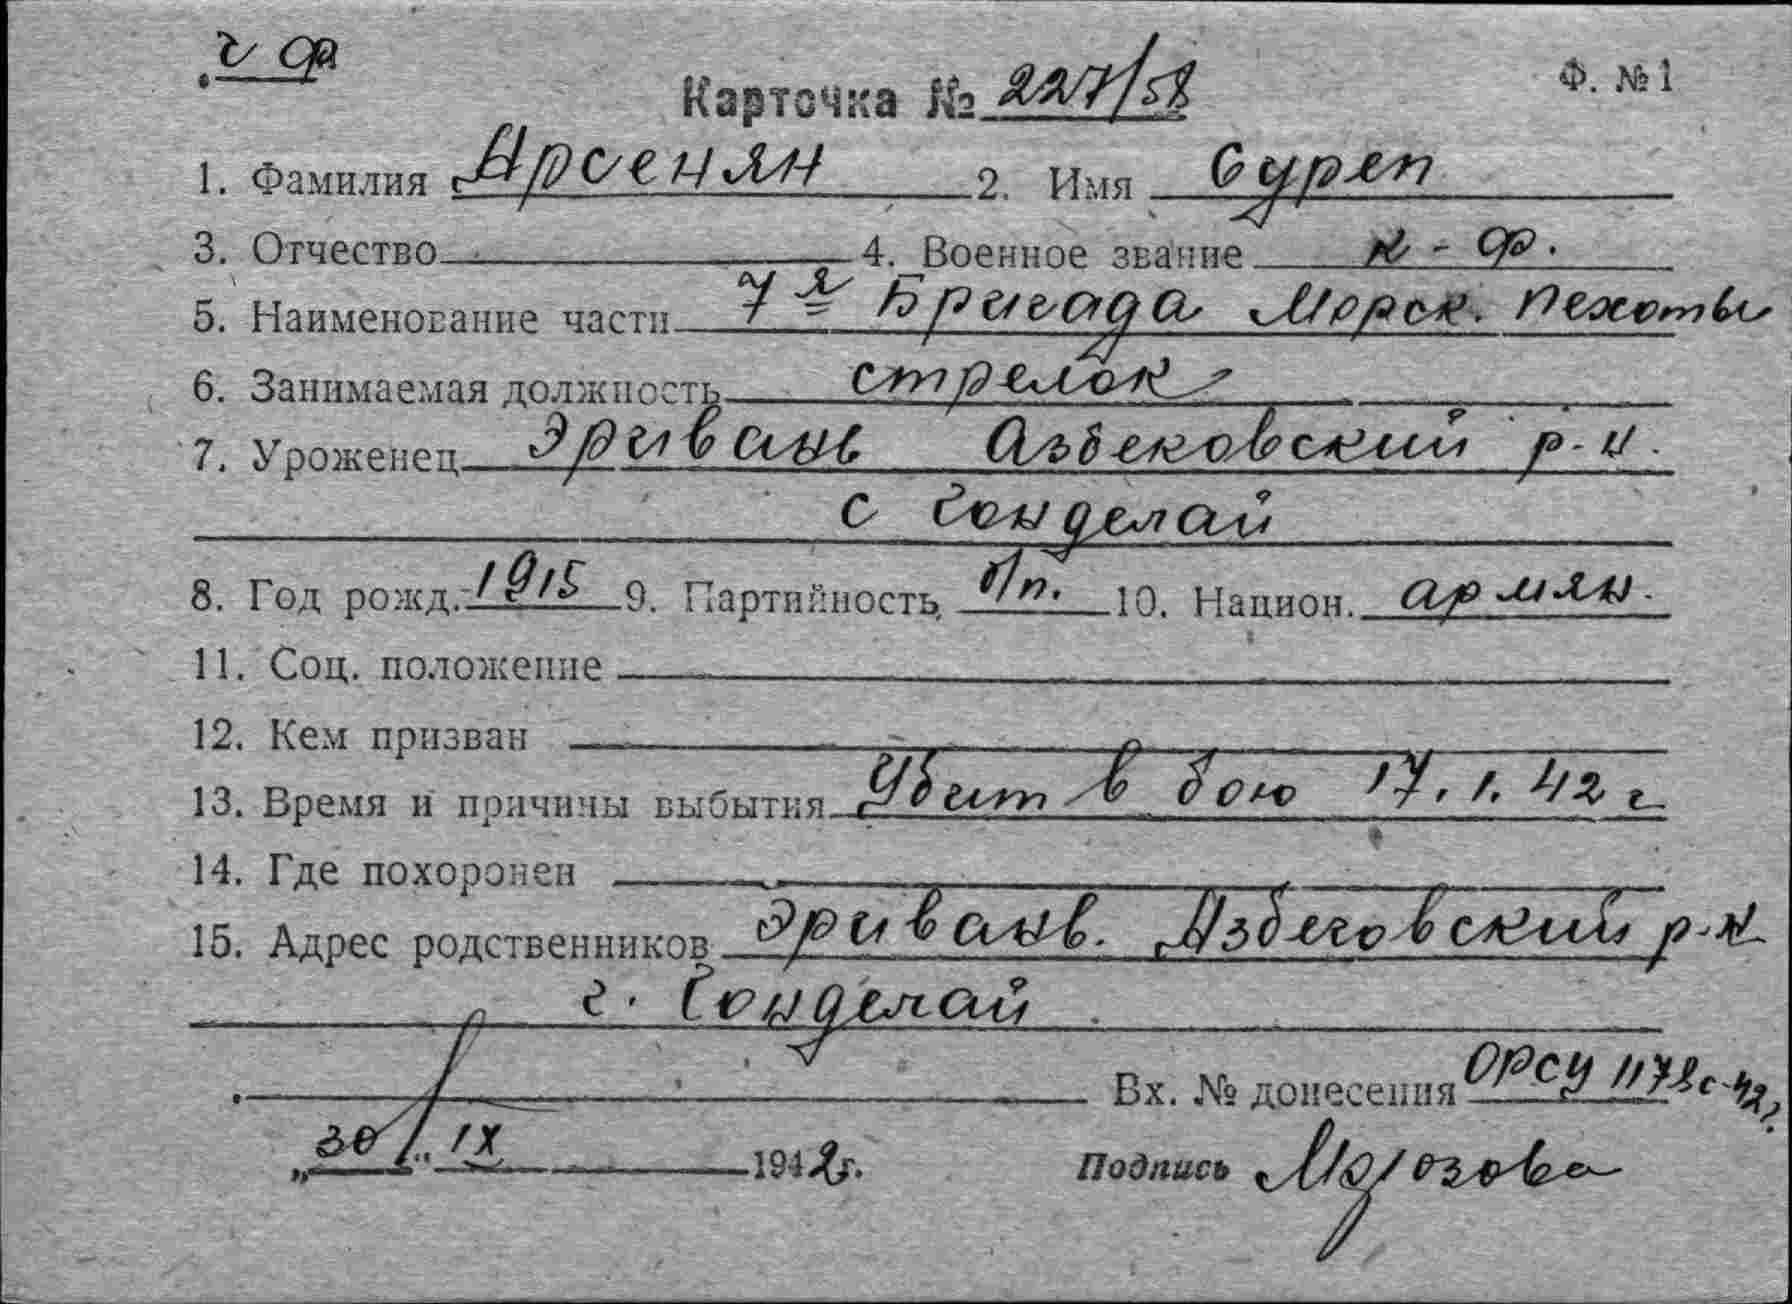 ч ф
Карточка № 227/58 Ф. №1
1. Фамилия Арсенян 2. Имя Сурен
3. Отчество 4. Военное звание к-ф.
5. Наименование части 7я Бригада Морск. пехоты
6. Занимаемая должность стрелок
7. Уроженец Эривань Азбековский р-н.
с Гонделай
8. Год рожд. 1915 9. Партийность б/п. 10. Национ. армян.
11. Соц. положение
12. Кем призван
13. Время и причины выбытия Убит в бою 17.1.42 г
14. Где похоронен
15. Адрес родственников Эривань. Азбеговский р-н
г. Гонделай
Вх. № донесения ОРСУ 1178с-42г
„30" IX 1942г. Подпись Морозова